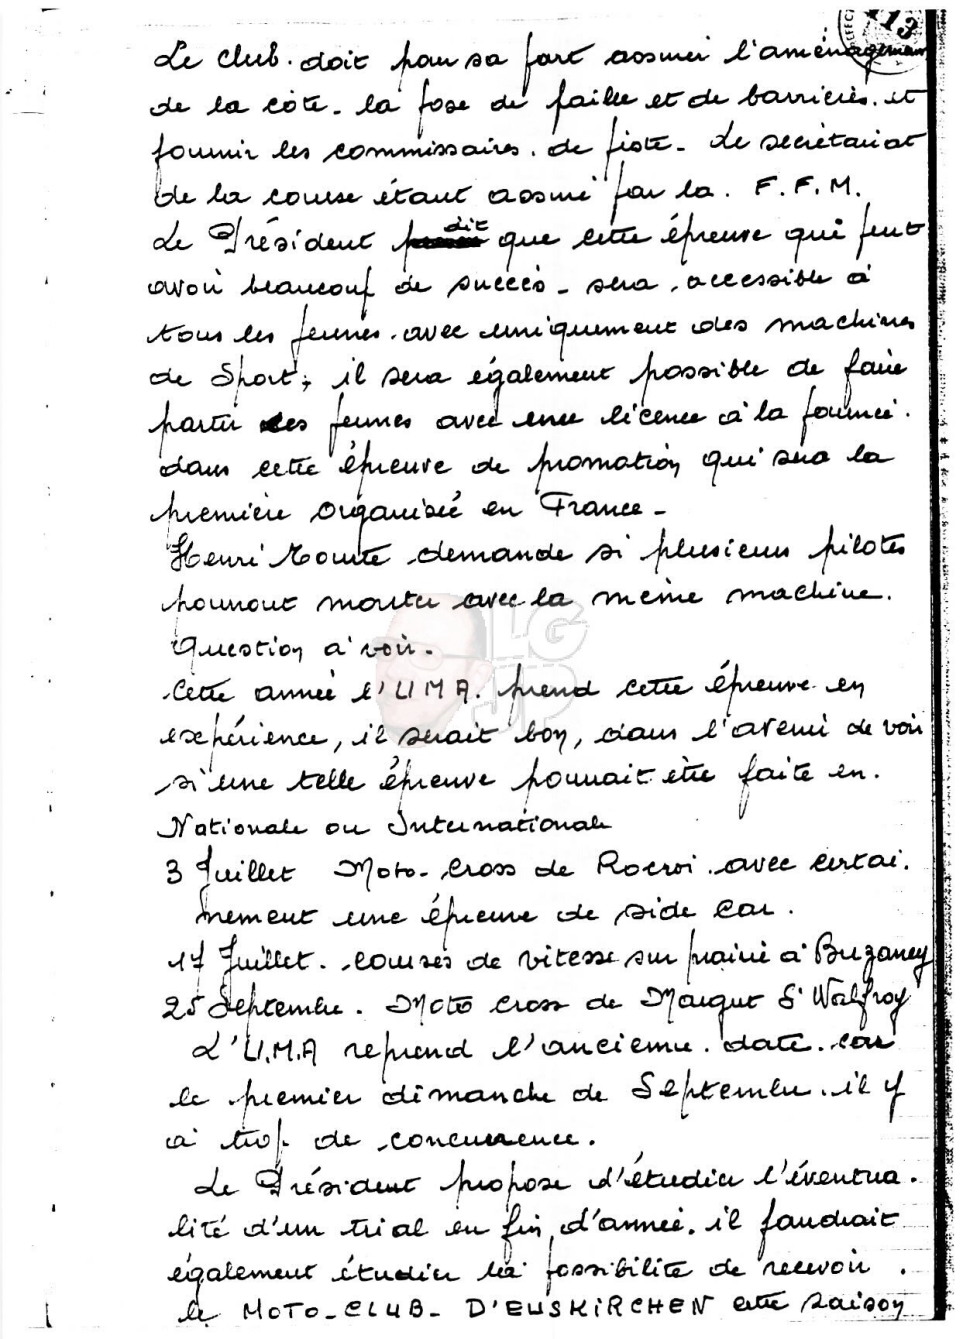 113
Le club. doit pour sa part assurer l'aménagement
de la côte. la pose de paille et de barrières. et
fournir les commissaires. de piste. Le secrétariat
de la course étant assuré par la. F.F.M.
Le Président dit que cette épreuve qui peut
avoir beaucoup de succès - sera. accessible à
tous les jeunes. avec uniquement des machines
de Sport; il sera également possible de faire
partir des jeunes avec une licence à la journée.
dans cette épreuve de promotion, qui sera la
première organisée en France -
Henri demande si plusieurs pilotes
pourront monter avec la même machine.
Question à voir.
Cette année l'UMA. prend cette épreuve en
expérience, il serait bon, dans l'avenir de voir
si une telle épreuve pourrait être faite en.
Nationale ou Internationale
3 Juillet Moto-Cross de Rocroi. avec certai.
nement une épreuve de side car.
17 Juillet. courses de vitesse sur prairie à Buzancy
25 Septembre. Moto Cross de Margut St Walfroy
L'U.M.A reprend l'ancienne. date. car
le premier dimanche de Septembre. il y
a trop de concurrence.
Le Président propose d'étudier l'éventua.
lité d'un trial en fin d'année. il faudrait
également étudier la possibilité de recevoir.
le MOTO-CLUB-D'EUSKIRCHEN cette saison
LG
JP